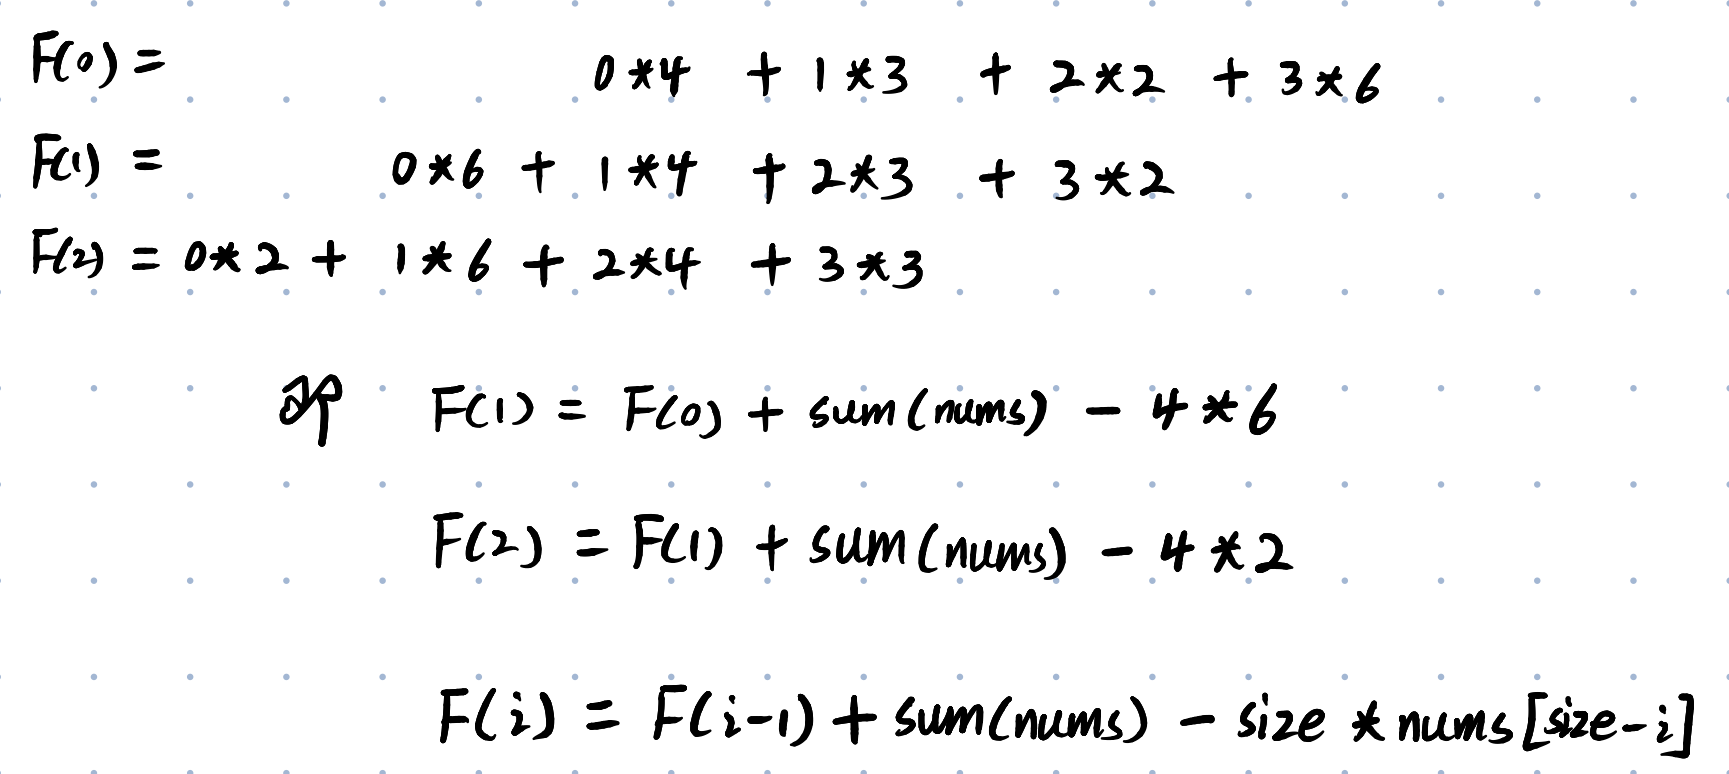 F(0) = 0*4 + 1*3 + 2*2 + 3*6
F(1) = 0*6 + 1*4 + 2*3 + 3*2
F(2) = 0*2 + 1*6 + 2*4 + 3*3
F(1) = F(0) + sum(nums) - 4*6
F(2) = F(1) + sum(nums) - 4*2
F(i) = F(i-1) + sum(nums) - size * nums[size-i]